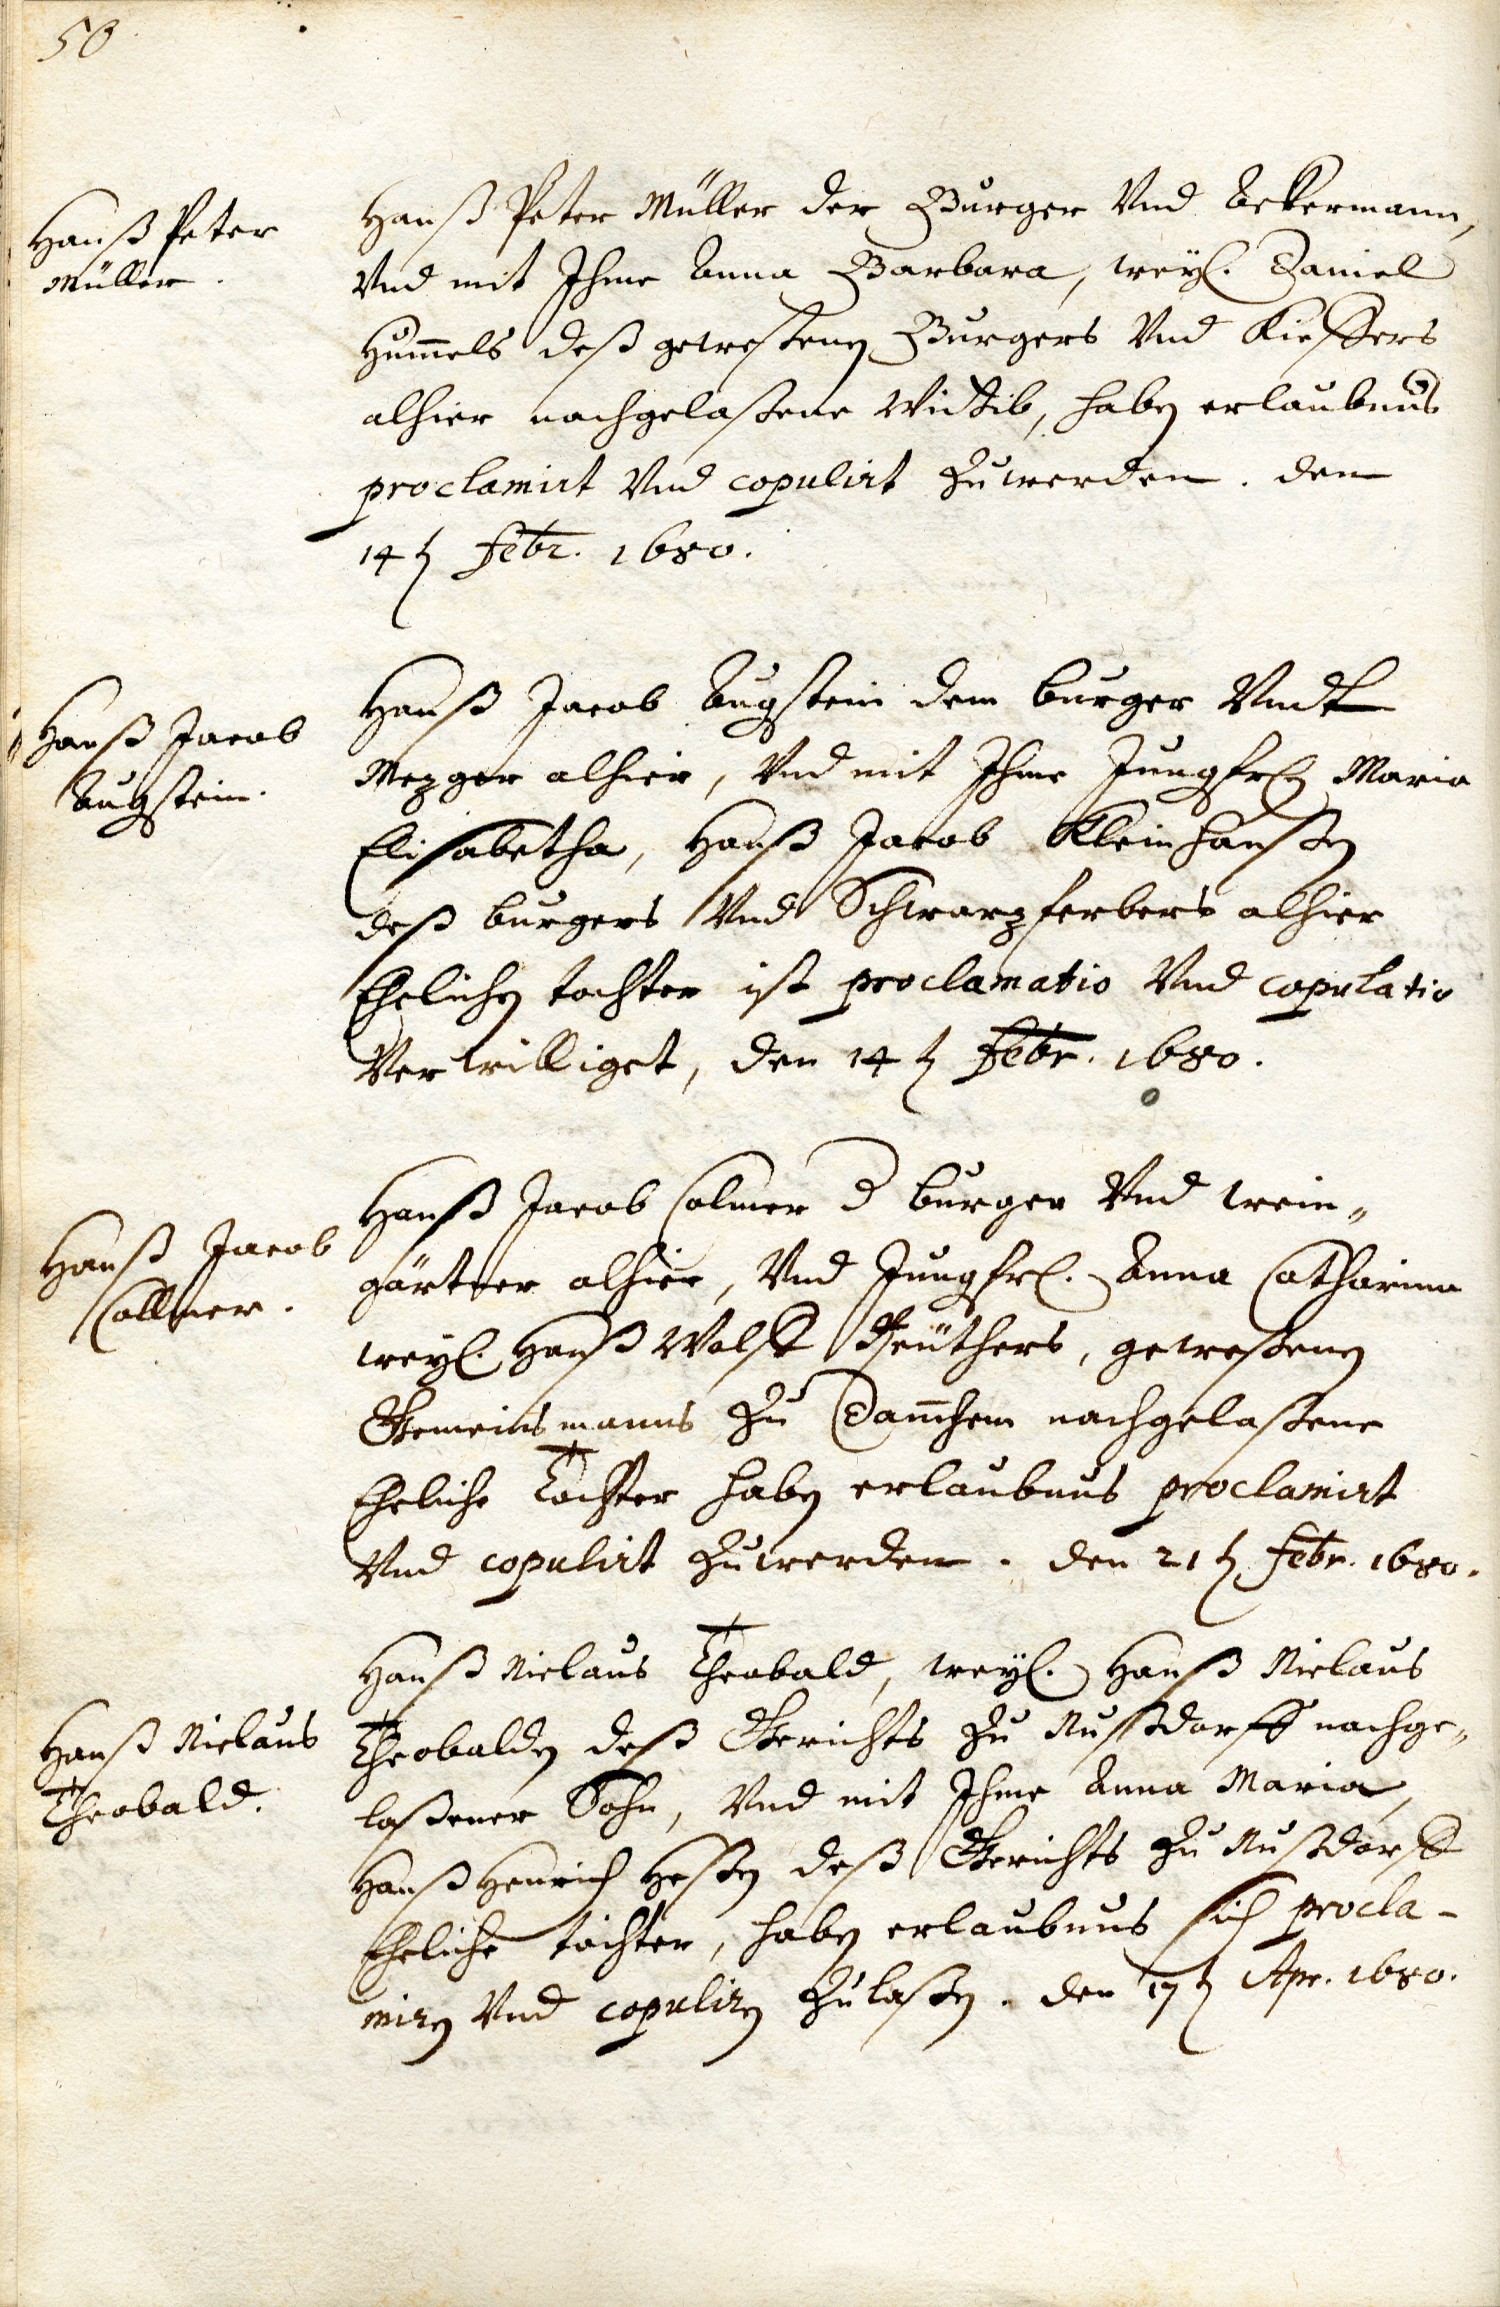 58
Hanß Peter
Müller.
Hanß Peter Müller der Burger Vnd Ackermann,
Vnd mit Ihme Anna Barbara, weyl. Daniel
Hum̄els deß gewesenen Burgers Vnd Kieffers
alhier nachgelaßene Wittib, haben erlaubnus
proclamirt Vnd copulirt zuwerden. den
14ten Febr. 1680.
Hanß Jacob
Augstein.
Hanß Jacob Augstein dem burger Vndt
Mezger alhier, Vnd mit Ihme Jungfrl. Maria
Elisabetha, Hanß Jacob Kleinhanßen
deß burgers Vnd Schwarzferbers alhier
Ehelichen tochter ist proclamatio Vnd copulatio
Verwilliget, den 14ten Febr. 1680.
Hanß Jacob
Collmer.
Hanß Jacob Colmer d burger Vnd wein„
gärtner alhier, Vnd Jungfrl. Anna Catharina
weyl. Hanß Wolff, gewesenen
Gemeinsmanns zu Dam̄hem nachgelaßene
Eheliche Tochter haben erlaubnus proclamirt
Vnd copulirt zuwerden. den 21ten Febr. 1680.
Hanß Niclaus
Theobald.
Hanß Niclaus Theobald, weyl. Hanß Niclaus
Theobalden deß Gerichts zu Nußdorff nachge„
laßener Sohn, Vnd mit Ihme Anna Maria,
Hanß Henrich Heßen deß Gerichts zu Nußdorff
Eheliche tochter, haben erlaubnus sich procla-
miren Vnd copuliren zulaßen. den 17ten Apr. 1680.